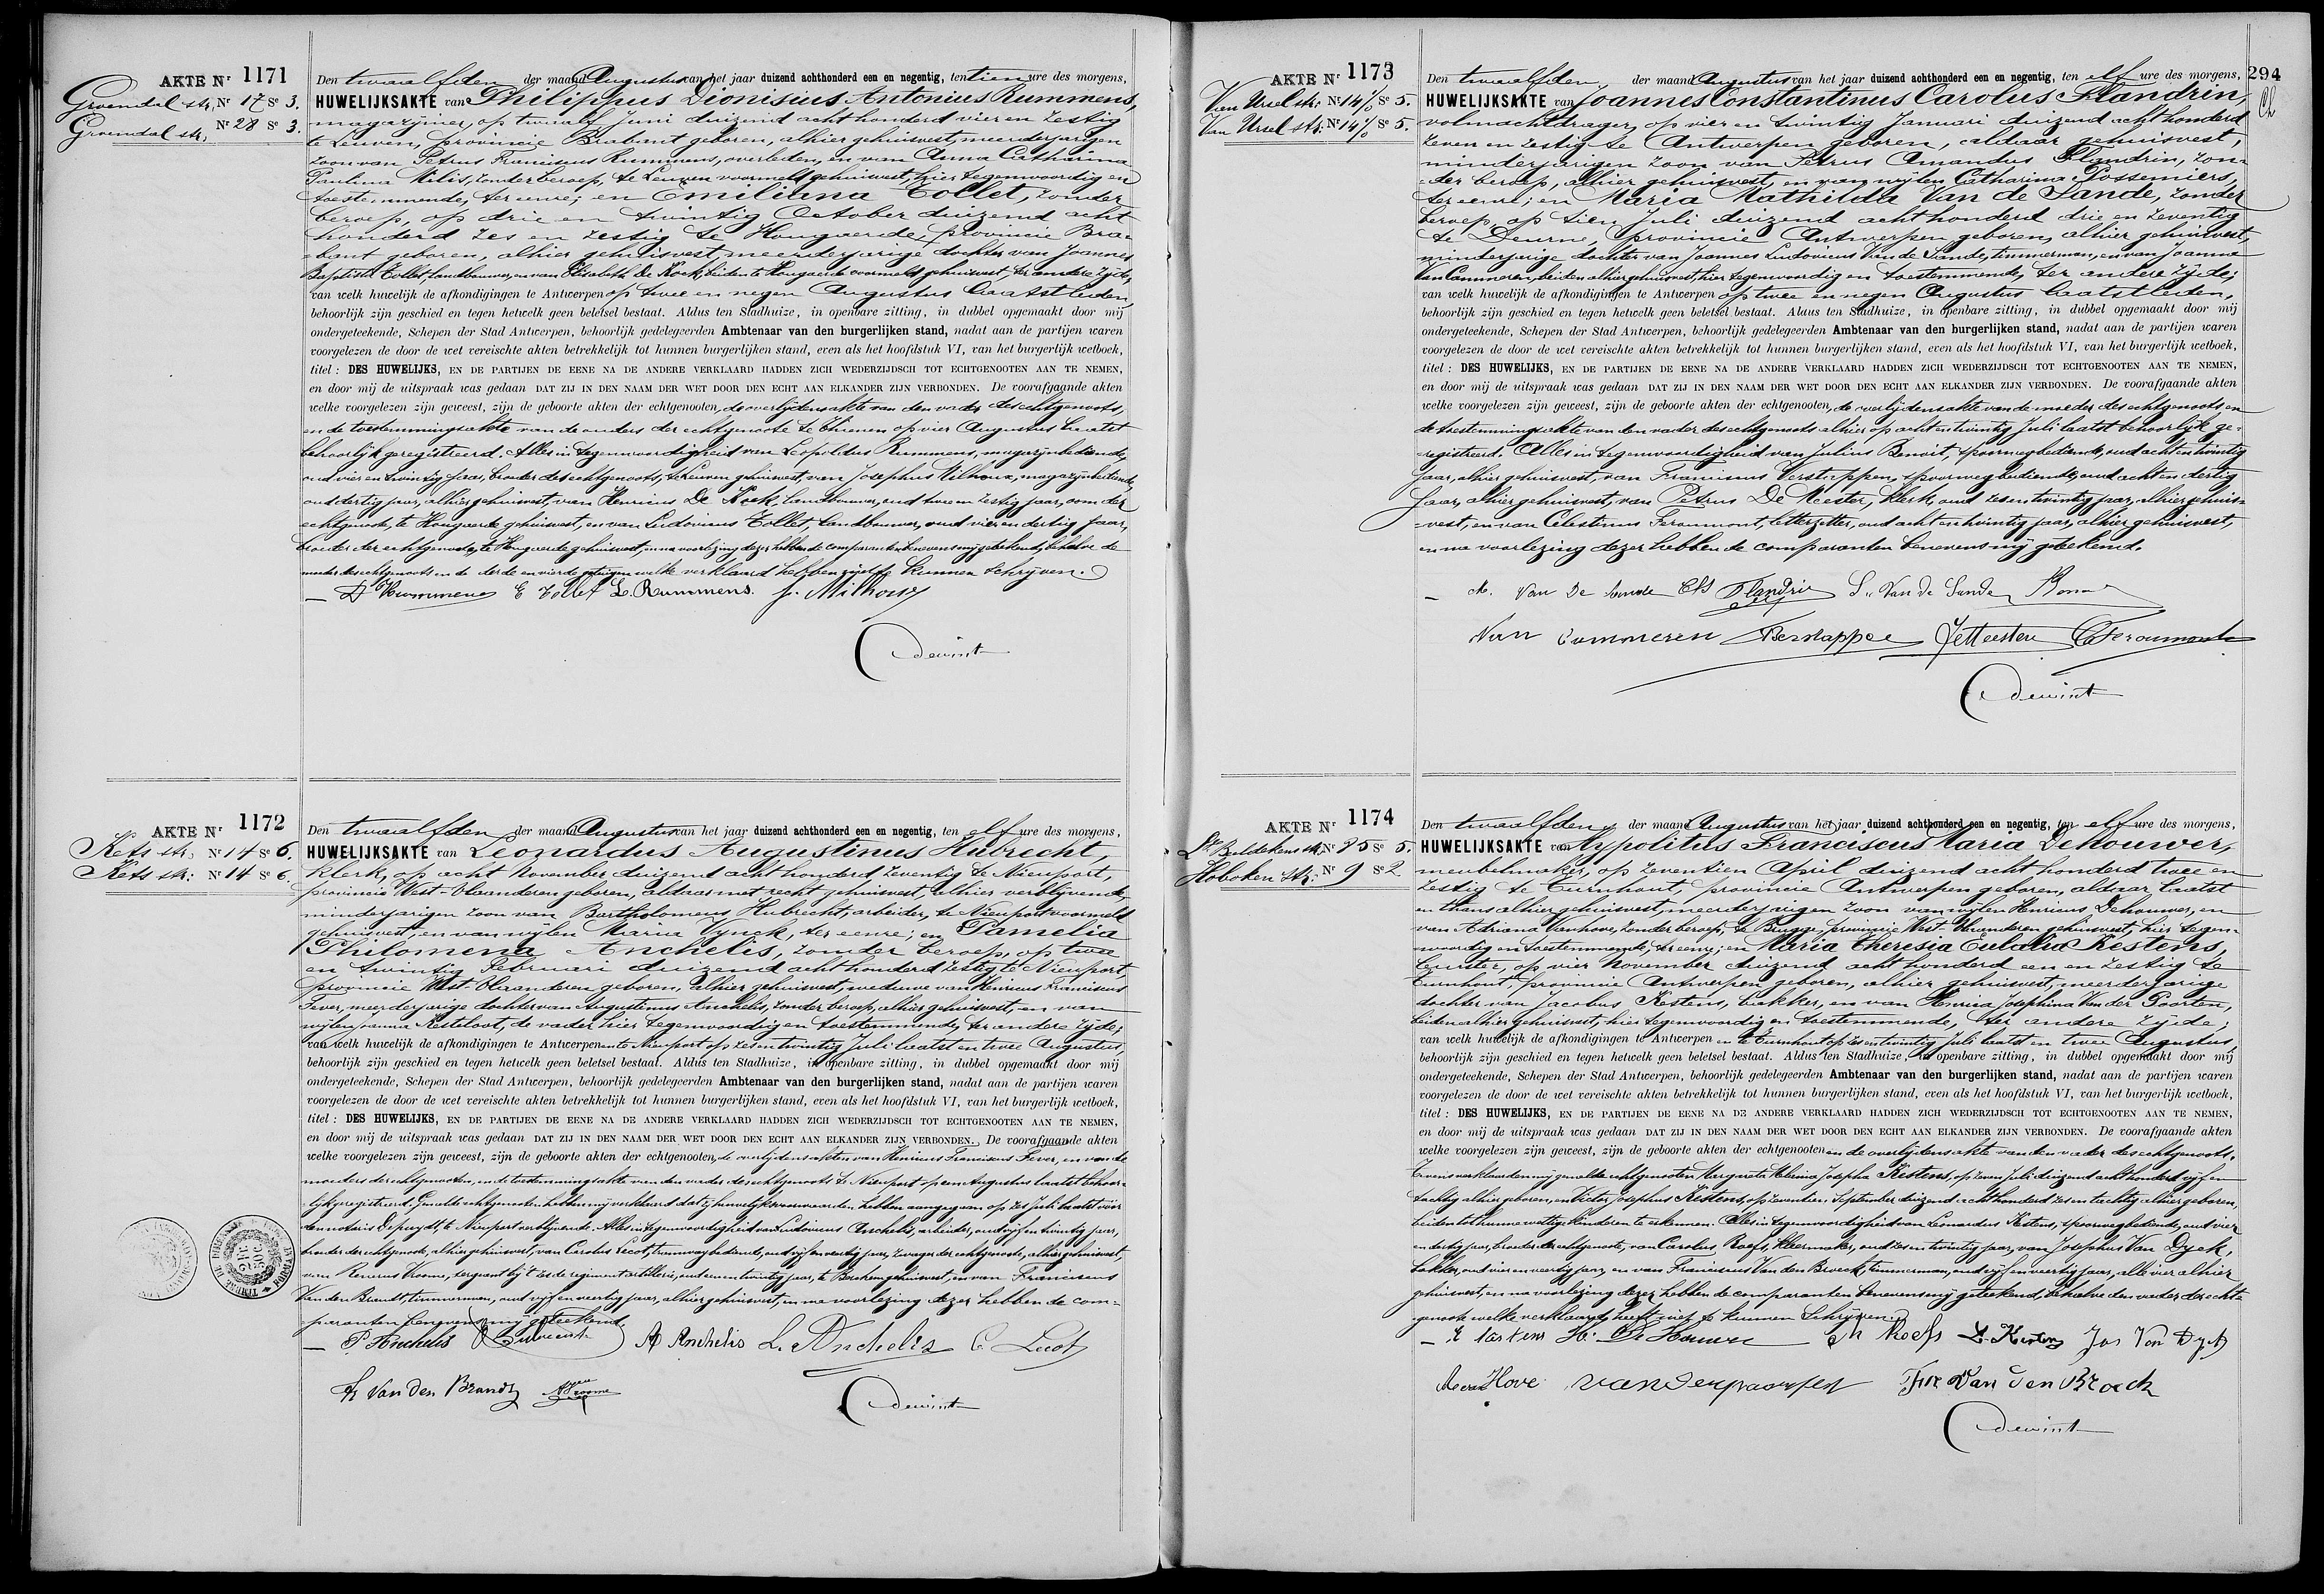 AKTE Nr 1171
Groendal str. Nr 17 Se 3.
Groendal str. Nr 28 Se 3.
Den twaalfden der maand Augustus van het jaar duizend achthonderd een en negentig, ten tien ure des morgens,
HUWELIJKSAKTE van Philippus Dionisius Antonius Rummens,
magazijnier, op twaalf Juni duizend acht honderd vier en zestig
te Leuven, provincie Brabant geboren, alhier gehuisvest, meerderjarigen
zoon van Petrus Franciscus Rummens, overleden, en van Anna Catharina
Paulina Milis, zonder beroep, te Leuven voormeld gehuisvest, hier tegenwoordig en
toestemmende, ter eenre; en Emiliana Tollet, zonder
beroep, op drie en twintig October duizend acht
honderd zes en zestig te Hougaerde, provincie Bra-
bant geboren, alhier gehuisvest, meerderjarige dochter van Joannes
Baptista Tollet, landbouwer, en van Elisabeth De Kock, beiden te Hougaerde voormeld gehuisvest, ter andere zijde,
van welk huwelijk de afkondigingen te Antwerpen op twee en negen Augustus laatstleden,
behoorlijk zijn geschied en tegen hetwelk geen beletsel bestaat. Aldus ten Stadhuize, in openbare zitting, in dubbel opgemaakt door mij
ondergeteekende, Schepen der Stad Antwerpen, behoorlijk gedelegeerden Ambtenaar van den burgerlijken stand, nadat aan de partijen waren
voorgelezen de door de wet vereischte akten betrekkelijk tot hunnen burgerlijken stand, even als het hoofdstuk VI, van het burgerlijk wetboek,
titel : DES HUWELIJKS, EN DE PARTIJEN DE EENE NA DE ANDERE VERKLAARD HADDEN ZICH WEDERZIJDSCH TOT ECHTGENOOTEN AAN TE NEMEN,
en door mij de uitspraak was gedaan DAT ZIJ IN DEN NAAM DER WET DOOR DEN ECHT AAN ELKANDER ZIJN VERBONDEN. De voorafgaande akten
welke voorgelezen zijn geweest, zijn de geboorte akten der echtgenooten, de overlijdensakte van den vader des echtgenoots,
en de toestemmingsakte van de ouders der echtgenoote te Thienen op vier Augustus laatst
behoorlijk geregistreerd. Alles in tegenwoordigheid van Leopoldus Rummens, magazijnbediende,
oud vier en twintig jaar, broeder des echtgenoots, te Leuven gehuisvest, van Josephus Milhoux, magazijnbediende,
oud dertig jaar, alhier gehuisvest, van Henricus De Kock, landbouwer, oud twee en zestig jaar, oom der
echtgenoote, te Hougaerde gehuisvest, en van Ludovicus Tollet, landbouwer, oud vier en dertig jaar,
broeder der echtgenoote, te Hougaerde gehuisvest, en na voorlezing dezer hebben de comparanten benevens mij geteekend, behalve de
moeder des echtgenoots en de derde en vierde getuigen welke verklaard hebben niet te kunnen schrijven.
D Rummens E Tollet L. Rummens. J. Milhoux
Dewint
AKTE Nr 1172
Kets str. Nr 14 Se 6.
Kets str: Nr 14 Se 6.
Den twaalfden der maand Augustus van het jaar duizend achthonderd een en negentig, ten elf ure des morgens,
HUWELIJKSAKTE van Leonardus Augustinus Hubrecht,
klerk, op acht November duizend acht honderd zeventig te Nieuport,
provincie West-Vlaanderen geboren, aldaar met recht gehuisvest, alhier verblijvende,
minderjarigen zoon van Bartholomeus Hubrecht, arbeider, te Nieuport voormeld
gehuisvest, en van wijlen Maria Vynck, ter eenre; en Pamelia
Philomena Anchelis, zonder beroep, op twee
en twintig Februari duizend acht honderd zestig te Nieuport,
provincie West Vlaanderen geboren, alhier gehuisvest, weduwe van Henricus Franciscus
Fever, meerderjarige dochter van Augustinus Anchelis, zonder beroep, alhier gehuisvest, en van
wijlen Joanna Kesteloot, de vader hier tegenwoordig en toestemmende, ter andere zijde,
van welk huwelijk de afkondigingen te Antwerpen en te Nieuport op zes en twintig Juli laatst en twee Augustus,
behoorlijk zijn geschied en tegen hetwelk geen beletsel bestaat. Aldus ten Stadhuize, in openbare zitting, in dubbel opgemaakt door mij
ondergeteekende, Schepen der Stad Antwerpen, behoorlijk gedelegeerden Ambtenaar van den burgerlijken stand, nadat aan de partijen waren
voorgelezen de door de wet vereischte akten betrekkelijk tot hunnen burgerlijken stand, even als het hoofdstuk VI, van het burgerlijk wetboek,
titel : DES HUWELIJKS, EN DE PARTIJEN DE EENE NA DE ANDERE VERKLAARD HADDEN ZICH WEDERZIJDSCH TOT ECHTGENOOTEN AAN TE NEMEN,
en door mij de uitspraak was gedaan DAT ZIJ IN DEN NAAM DER WET DOOR DEN ECHT AAN ELKANDER ZIJN VERBONDEN. De voorafgaande akten
welke voorgelezen zijn geweest, zijn de geboorte akten der echtgenooten, de overlijdensakten van Henricus Franciscus Fever, en van de
moeders der echtgenooten, en de toestemmingsakte van den vader des echtgenoots te Nieuport op een Augustus laatst behoor-
lijk geregistreerd. Gemelde echtgenooten hebben mij verklaard dat zij huwelijksvoorwaarden hebben aangegaan op zes Juli laatst voor
den notaris Depuydt, te Nieuport verblijvende. Alles in tegenwoordigheid van Ludovicus Anchelis, arbeider, oud vijf en twintig jaar,
broeder der echtgenoote, alhier gehuisvest, van Carolus Lecot, tramwaybediende, oud vijf en veertig jaar, zwager der echtgenoote, alhier gehuisvest,
van Renerus Vroome, sergeant bij 't zesde regiment artillerie, oud een en twintig jaar, te Berchem gehuisvest, en van Franciscus
Van den Brandt, timmerman, oud vijf en veertig jaar, alhier gehuisvest, en na voorlezing dezer hebben de com-
paranten benevens mij geteekend.
P. Anchelis A Anchelis L. Anchelis C. Lecot
Fr Van Den Brandt
Dewint
AKTE Nr 1173
Van Ursel str: Nr 14 1/0 Se 5.
Van Ursel str: Nr 14 1/0 Se 5.
294
Den twaalfden der maand Augustus van het jaar duizend achthonderd een en negentig, ten elf ure des morgens,
HUWELIJKSAKTE van Joannes Constantinus Carolus Flandrin,
volmachtdrager, op vier en twintig Januari duizend acht honderd
zeven en zestig te Antwerpen geboren, aldaar gehuisvest,
minderjarigen zoon van Petrus Amandus Flandrin, zon-
der beroep, alhier gehuisvest, en van wijlen Catharina Possemiers,
ter eenre; en Maria Mathilda Van de Sande, zonder
beroep, op tien Juli duizend acht honderd drie en zeventig
te Deurne, provincie Antwerpen geboren, alhier gehuisvest,
minderjarige dochter van Joannes Ludovicus Van de Sande, timmerman, en van Joanna
Van Cammeren, beiden alhier gehuisvest, hier tegenwoordig en toestemmende, ter andere zijde;
van welk huwelijk de afkondigingen te Antwerpen op twee en negen Augustus laatstleden,
behoorlijk zijn geschied en tegen hetwelk geen beletsel bestaat. Aldus ten Stadhuize, in openbare zitting, in dubbel opgemaakt door mij
ondergeteekende, Schepen der Stad Antwerpen, behoorlijk gedelegeerden Ambtenaar van den burgerlijken stand, nadat aan de partijen waren
voorgelezen de door de wet vereischte akten betrekkelijk tot hunnen burgerlijken stand, even als het hoofdstuk VI, van het burgerlijk wetboek,
titel : DES HUWELIJKS, EN DE PARTIJEN DE EENE NA DE ANDERE VERKLAARD HADDEN ZICH WEDERZIJDSCH TOT ECHTGENOOTEN AAN TE NEMEN,
en door mij de uitspraak was gedaan DAT ZIJ IN DEN NAAM DER WET DOOR DEN ECHT AAN ELKANDER ZIJN VERBONDEN. De voorafgaande akten
welke voorgelezen zijn geweest, zijn de geboorte akten der echtgenooten, de overlijdensakte van de moeder des echtgenoots en
de toestemmingsakte van den vader des echtgenoots alhier op acht en twintig Juli laatst behoorlijk ge-
registreerd. Alles in tegenwoordigheid van Julius Benoit, spoorwegbediende, oud acht en twintig
jaar, alhier gehuisvest, van Franciscus Verstappen, spoorwegbediende, oud acht en dertig
jaar, alhier gehuisvest, van Petrus De Meester, klerk, oud zes en twintig jaar, alhier gehuis-
vest, en van Celestinus Feroumont, letterzetter, oud acht en twintig jaar, alhier gehuisvest,
en na voorlezing dezer hebben de comparanten benevens mij geteekend.
M. Van De Sande Flandrin L. Van de Sande
Van Cammeren Verstappen Feroumont
Dewint
AKTE Nr 1174
Nr 25 Se 5.
Hoboken str: Nr 9 Se 2
Den twaalfden der maand Augustus van het jaar duizend achthonderd een en negentig, ten elf ure des morgens,
HUWELIJKSAKTE van Hypolitus Franciscus Maria Dehouwer,
meubelmaker, op zeventien April duizend acht honderd twee en
zestig te Turnhout, provincie Antwerpen geboren, aldaar laatst
en thans alhier gehuisvest, meerderjarigen zoon van wijlen Henricus Dehouwer, en
van Adriana Vanhove, zonder beroep, te Brugge, provincie West Vlaanderen gehuisvest, hier tegen-
woordig en toestemmende, ter eenre; en Maria Theresia Eulalia Kestens,
op vier November duizend acht honderd een en zestig te
Turnhout, provincie Antwerpen geboren, alhier gehuisvest, meerderjarige
dochter van Jacobus Kestens, bakker, en van Henrica Josephina Van der Poorten,
beiden alhier gehuisvest, hier tegenwoordig en toestemmende, ter andere zijde;
van welk huwelijk de afkondigingen te Antwerpen en te Turnhout op zes en twintig Juli laatst en twee Augustus,
behoorlijk zijn geschied en tegen hetwelk geen beletsel bestaat. Aldus ten Stadhuize, in openbare zitting, in dubbel opgemaakt door mij
ondergeteekende, Schepen der Stad Antwerpen, behoorlijk gedelegeerden Ambtenaar van den burgerlijken stand, nadat aan de partijen waren
voorgelezen de door de wet vereischte akten betrekkelijk tot hunnen burgerlijken stand, even als het hoofdstuk VI, van het burgerlijk wetboek,
titel : DES HUWELIJKS, EN DE PARTIJEN DE EENE NA DE ANDERE VERKLAARD HADDEN ZICH WEDERZIJDSCH TOT ECHTGENOOTEN AAN TE NEMEN,
en door mij de uitspraak was gedaan DAT ZIJ IN DEN NAAM DER WET DOOR DEN ECHT AAN ELKANDER ZIJN VERBONDEN. De voorafgaande akten
welke voorgelezen zijn geweest, zijn de geboorte akten der echtgenooten en de overlijdensakte van den vader des echtgenoots.
Tevens verklaarden mij gemelde echtgenooten Margareta Maria Josepha Kestens, op zeven Juli duizend acht honderd vijf en
tachtig alhier geboren, en Victor Josephus Kestens, op zeventien September duizend acht honderd zes en tachtig alhier geboren,
beiden tot hunne wettige kinderen te erkennen. Alles in tegenwoordigheid van Leonardus Kestens, spoorwegbediende, oud vier
en dertig jaar, broeder der echtgenoote, van Carolus Roefs, kleermaker, oud zes en twintig jaar, van Josephus Van Dyck,
bakker, oud vier en veertig jaar, en van Franciscus Van den Broeck, timmerman, oud vijf en veertig jaar, alle vier alhier
gehuisvest, en na voorlezing dezer hebben de comparanten benevens mij geteekend, behalve den vader der echt-
genoote welke verklaard heeft niet te kunnen schrijven.
E Kestens H. De Houwer Ch Roefs L. Kestens Jos Van Dyck
A van Hove vanderpoorten Fr Van den Broeck
Dewint